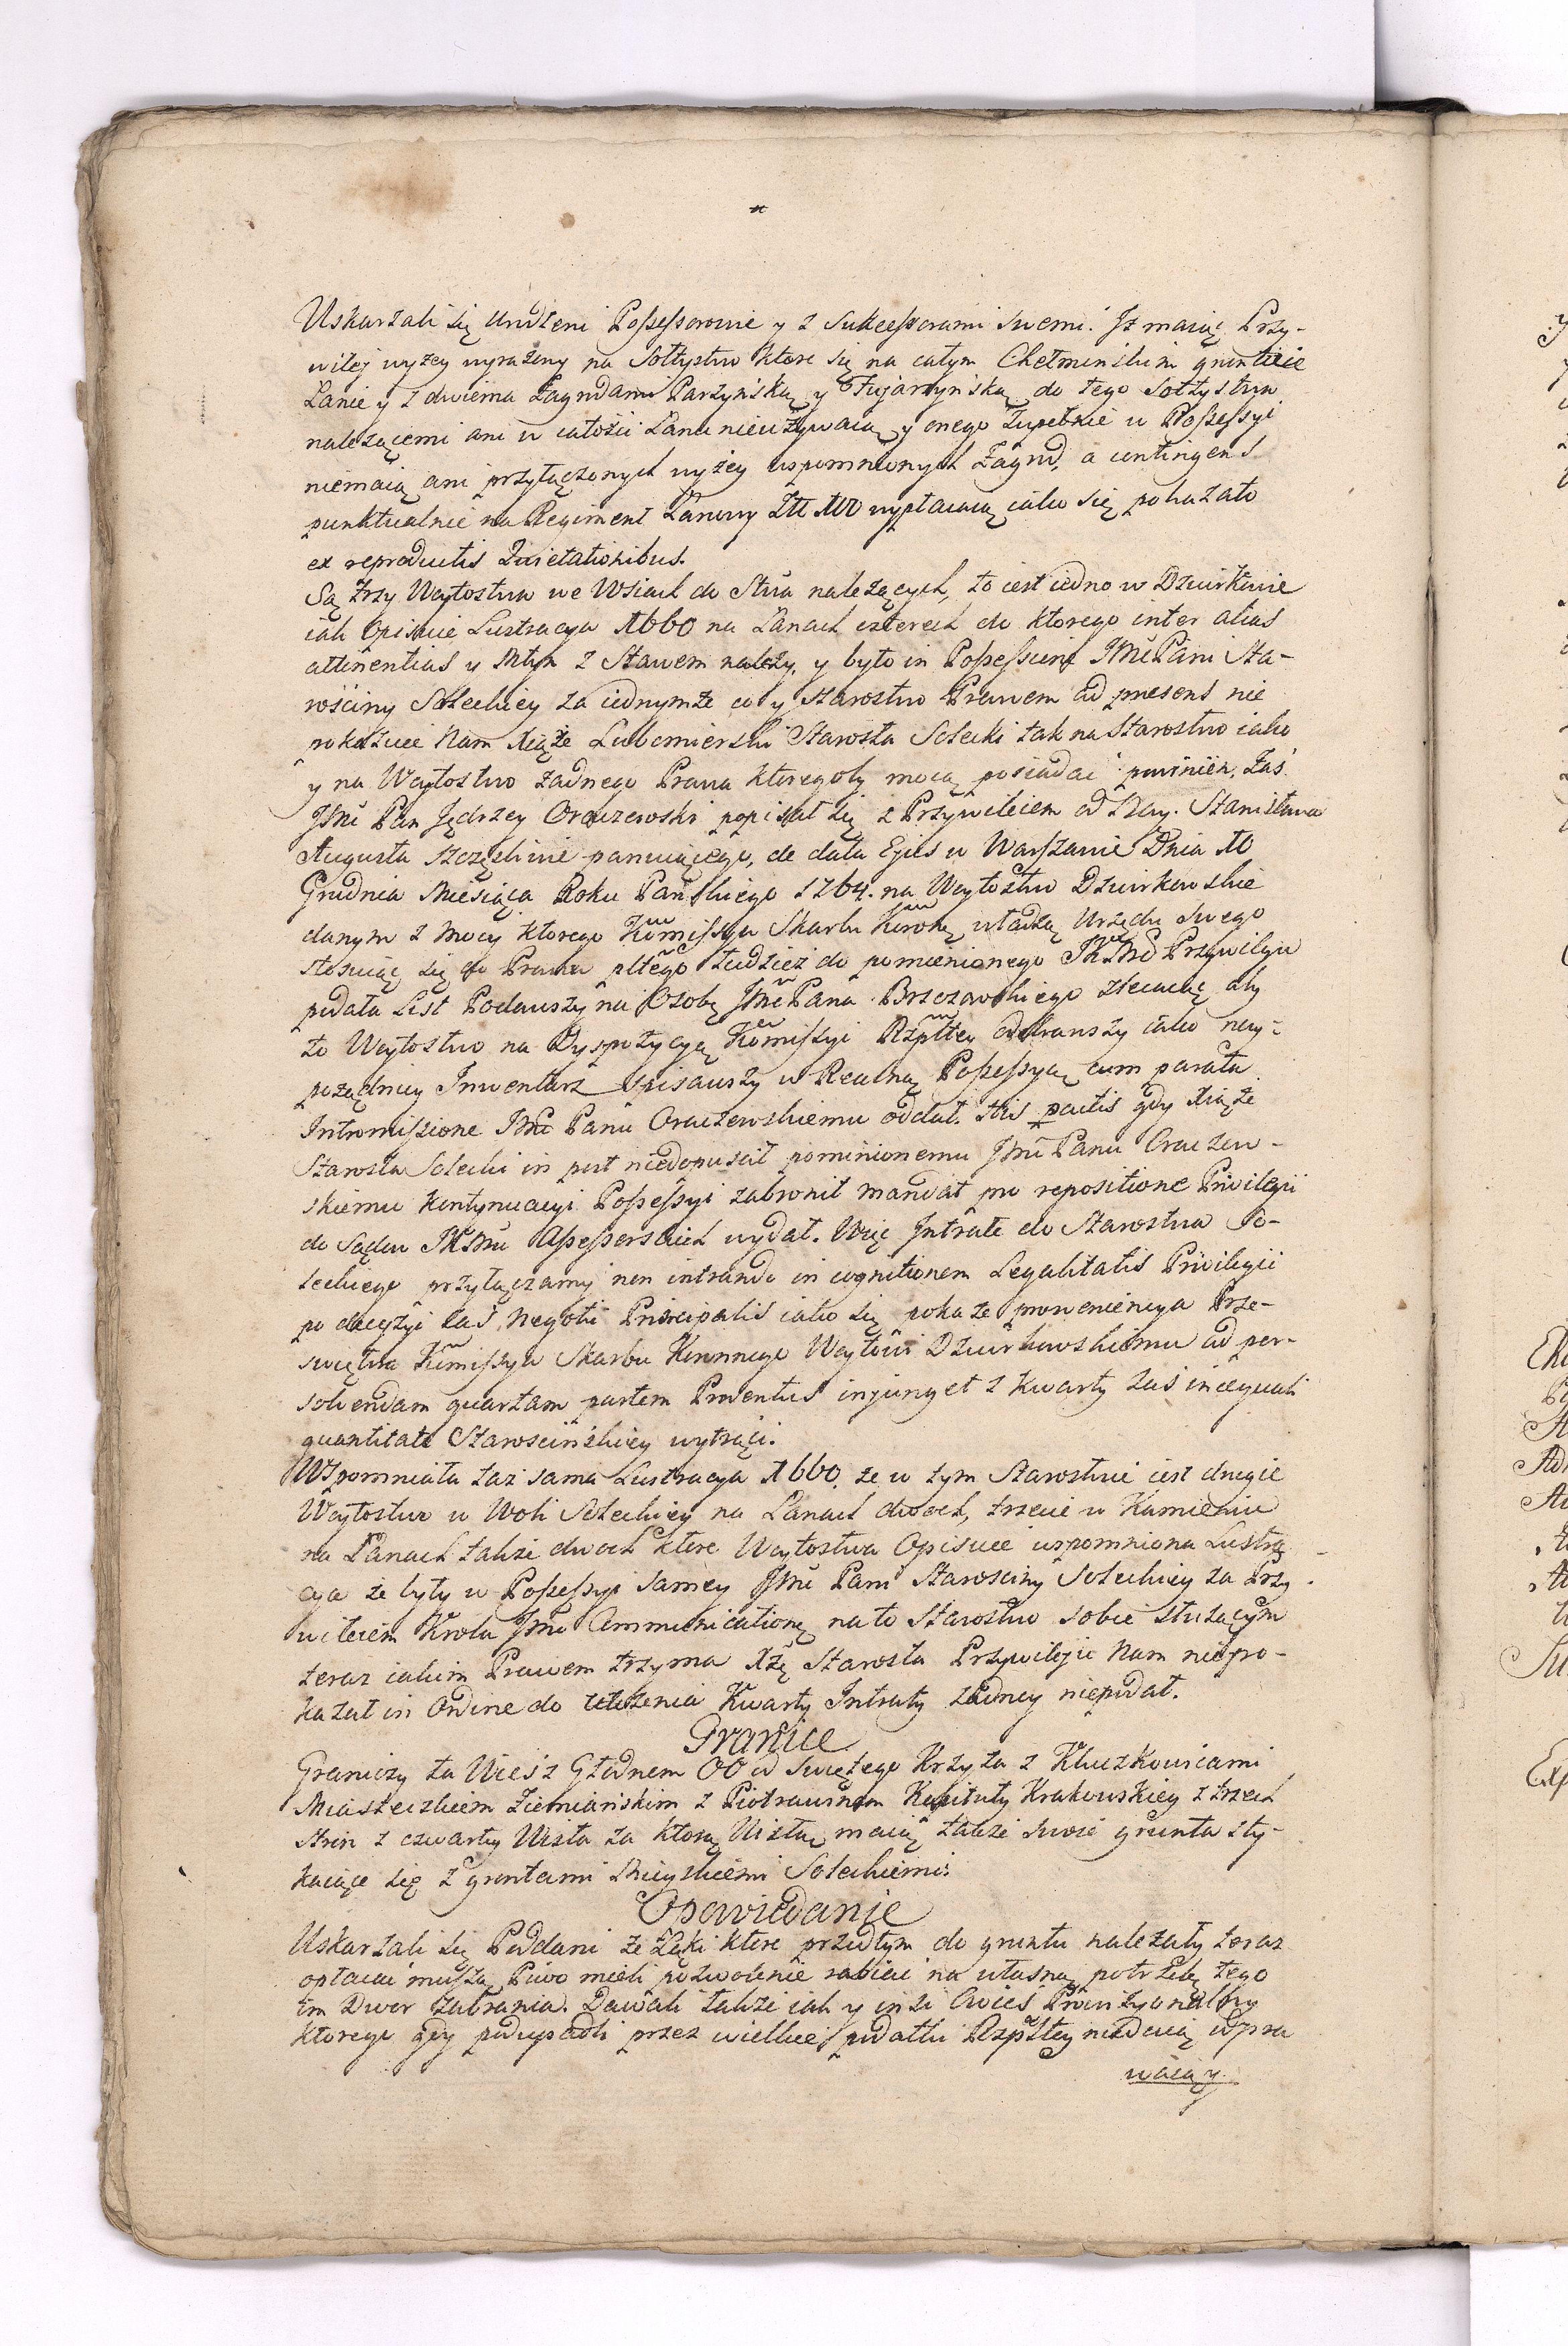 Uskarzali się Urodzeni Possessorowie y z Sukcessorami swemi. Iż maiąc Przy-
wiley wyżey wyrażony na Sołtystwo ktore się na całym Chełminskim gruntuie
Łanie y z dwiema Zagrodami Parzynską y Fujarzynską do tego Sołtystwa
należącemi ani w całości Łanu nieużywaią y onego zupełnie w Possessyi
niemaią ani przyłączonych wyżey wspomnionych Zagrod, a contingens
punktualnie na Regiment Łanowy wypłacaią iako się pokazało
ex reproductis Quietationibus.
Są trzy Woytostwa we Wsiach do Stwa należących, to iest iedno w Dziurkowie
iak Opisuie Lustracya 1660 na Łanach czterech do ktorego inter alias
attinentias y Młyn z Stawem należy, y było in Possessione JMci Pani Sta-
rościny Soleckiey za iednymże co y Starostwo Prawem ad praesens nie
pokazuie Nam Xiąże Lubomierski Starosta Solecki tak na Starostwo iako
y na Woytostwo żadnego Prawa ktoregoby mocą posiadać powinien, Zaś
JMć Pan Jędrzey Oraczewski popisał się z Przywileiem od Nay. Stanisława
Augusta szczęśliwie panuiącego, de data Ejus w Warszawie Dnia 10
Grudnia Miesiąca Roku Pańskiego 1764. na Woytostwo Dziurkowskie
danym z mocy ktorego Kommissya Skarbu Koronę władzą Urzędu swego
stosuiąc się do Prawa płtego tudzież do pomienionego JKMć Przywileju
podała List Podawszy na Osobę JMć Pana Brzezawskiego zlecaiąc aby
to Woytostwo na Dyspozycyą Kommissyi Rzpltey odebrawszy iako nay-
porządniey Inwentarz spisawszy w Realną Possessyą cum parata
Intromissione JMć Panu Oraczewskiemu oddał. His pactis gdy Xiąże
Starosta Solecki in post niedopuscił pominionemu JMć Panu Oraczew-
skiemu kontynuacyi Possessyi zabronił mandat pro repositione Privilegii
do Sądu JKMć Assessorskich wydał. Więc Intratę do Starostwa So-
leckiego przyłączamy non intrando in cognitionem Legalitatis Privilegii
po decyzyi zaś Negotii Principalis iako się pokaże prowieniencya Prze-
swiętna Kommissya Skarbu Koronnego Woytowi Dziurkowskiemu ad per-
solvendam quartam partem Proventus injunget z Kwarty zaś in aequali
quantitate Starościńskiey wytrąci.
Wspomniała taż sama Lustracya 1660. że w tym Starostwie iest drugie
Woytostwo w Woli Soleckiey na Łanach dwoch, trzecie w Kamieniu
na Łanach także dwoch ktore Woytostwa Opisuie wspomniona Lustra-
cya że były w Possessyi samey JMć Pani Starosciny Soleckiey za Przy-
wileiem Krola JMć Communicationę na to Starostwo sobie służącym
teraz iakim Prawem trzyma Xżę Starosta Przywileju Nam niepo-
kazał in Ordine do ułożenia Kwarty Intraty żadney niepodał.
Granice
Graniczy ta Wieś z Głodnem OO od Swiętego Krzyża z Kluczkowicami
Miasteczkiem Ziemiańskim z Piotrawinem Kapituły Krakowskiey z trzech
Stron z czwartey Wisła za ktorą Wisłą maią także swoie grunta sty-
kaiące się z gruntami Mieyskiemi Soleckiemi.
Opowiedanie
Uskarzali się Poddani że Łąki ktore przedtym do gruntu należały teraz
opłacać muszą, Piwo mieli pozwolenie robić na własną potrzebę tego
im Dwor zabrania. Dawali także iak y inśi Owies Prowizyonalny
ktorego gdy podupadli przez wielkie podatki Rzpltey niedaią odpra
waią y.